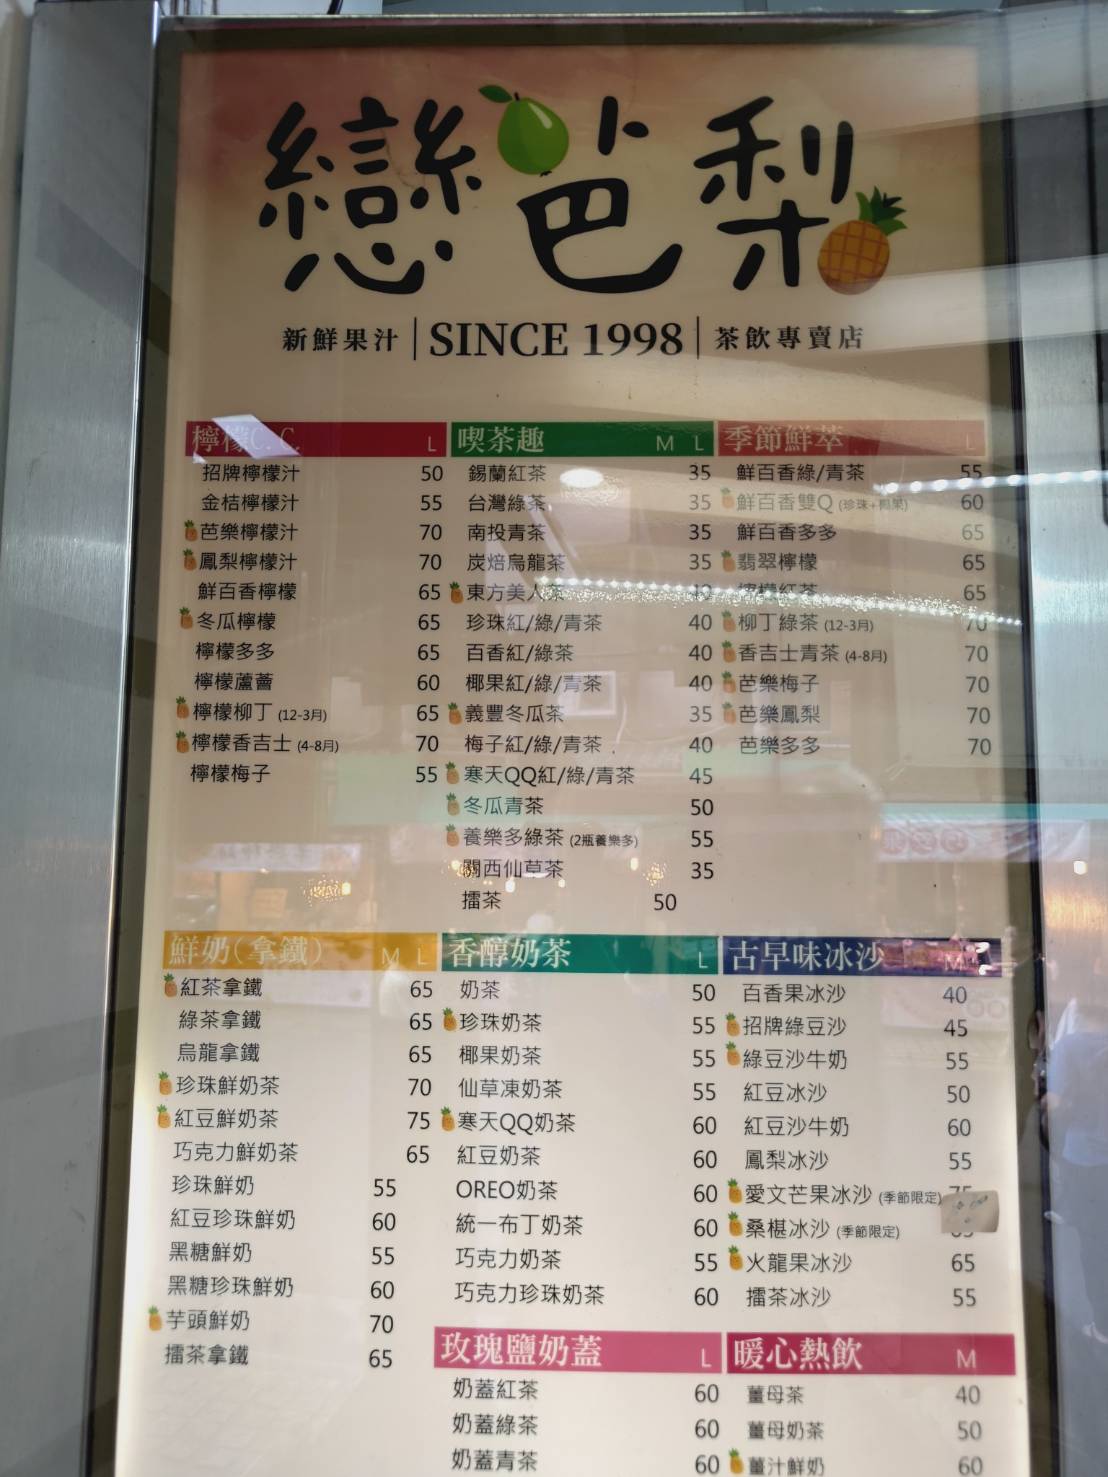 戀芭梨
新鮮果汁 | SINCE 1998 | 茶飲專賣店
檸檬C.C. L
招牌檸檬汁 50
金桔檸檬汁 55
芭樂檸檬汁 70
鳳梨檸檬汁 70
鮮百香檸檬 65
冬瓜檸檬 65
檸檬多多 65
檸檬蘆薈 60
檸檬柳丁 (12-3月) 65
檸檬香吉士 (4-8月) 70
檸檬梅子 55
喫茶趣 M L
錫蘭紅茶 35
台灣綠茶 35
南投青茶 35
炭焙烏龍茶 35
東方美人茶 40
珍珠紅/綠/青茶 40
百香紅/綠茶 40
椰果紅/綠/青茶 40
義豐冬瓜茶 35
梅子紅/綠/青茶 40
寒天QQ紅/綠/青茶 45
冬瓜青茶 50
養樂多綠茶 (2瓶養樂多) 55
關西仙草茶 35
擂茶 50
季節鮮萃 L
鮮百香綠/青茶 55
鮮百香雙Q (珍珠+椰果) 60
鮮百香多多 65
翡翠檸檬 65
檸檬紅茶 65
柳丁綠茶 (12-3月) 70
香吉士青茶 (4-8月) 70
芭樂梅子 70
芭樂鳳梨 70
芭樂多多 70
鮮奶(拿鐵) M L
紅茶拿鐵 65
綠茶拿鐵 65
烏龍拿鐵 65
珍珠鮮奶茶 70
紅豆鮮奶茶 75
巧克力鮮奶茶 65
珍珠鮮奶 55
紅豆珍珠鮮奶 60
黑糖鮮奶 55
黑糖珍珠鮮奶 60
芋頭鮮奶 70
擂茶拿鐵 65
香醇奶茶 L
奶茶 50
珍珠奶茶 55
椰果奶茶 55
仙草凍奶茶 55
寒天QQ奶茶 60
紅豆奶茶 60
OREO奶茶 60
統一布丁奶茶 60
巧克力奶茶 55
巧克力珍珠奶茶 60
古早味冰沙 M
百香果冰沙 40
招牌綠豆沙 45
綠豆沙牛奶 55
紅豆冰沙 50
紅豆沙牛奶 60
鳳梨冰沙 55
愛文芒果冰沙 (季節限定)
桑椹冰沙 (季節限定)
火龍果冰沙 65
擂茶冰沙 55
玫瑰鹽奶蓋 L
奶蓋紅茶 60
奶蓋綠茶 60
奶蓋青茶 60
暖心熱飲 M
薑母茶 40
薑母奶茶 50
薑汁鮮奶 60